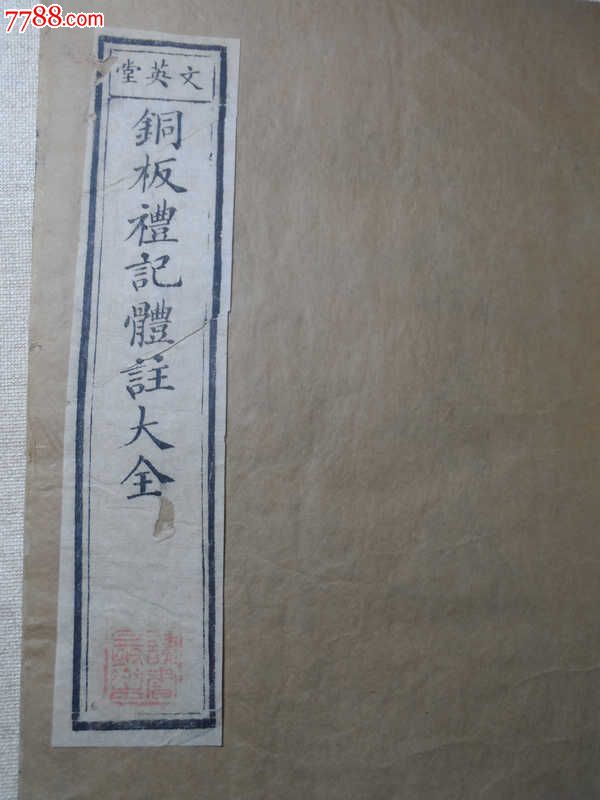 7788.com
文英堂
銅板禮記體註大全